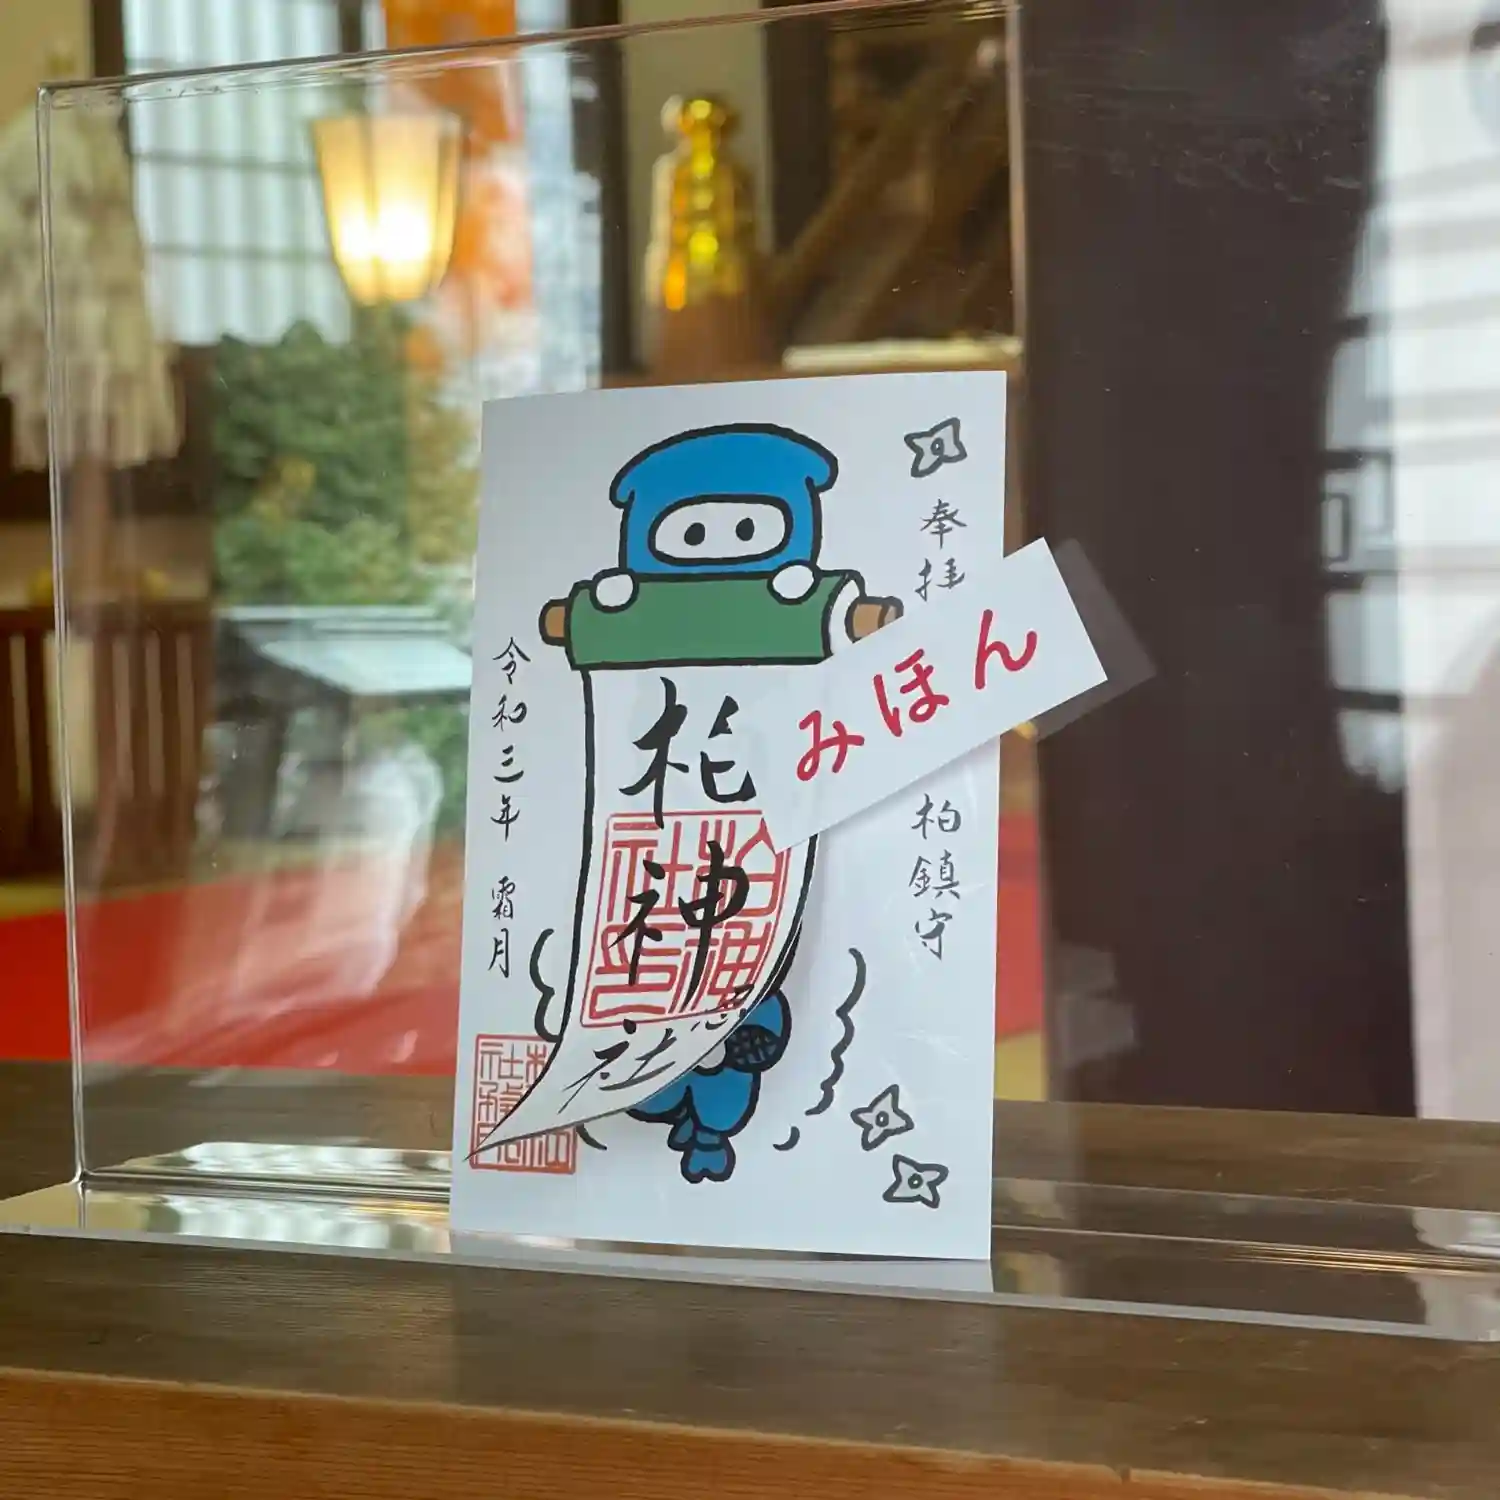 奉拝
柏鎮守
みほん
柏神社
柏神社印
令和三年 霜月